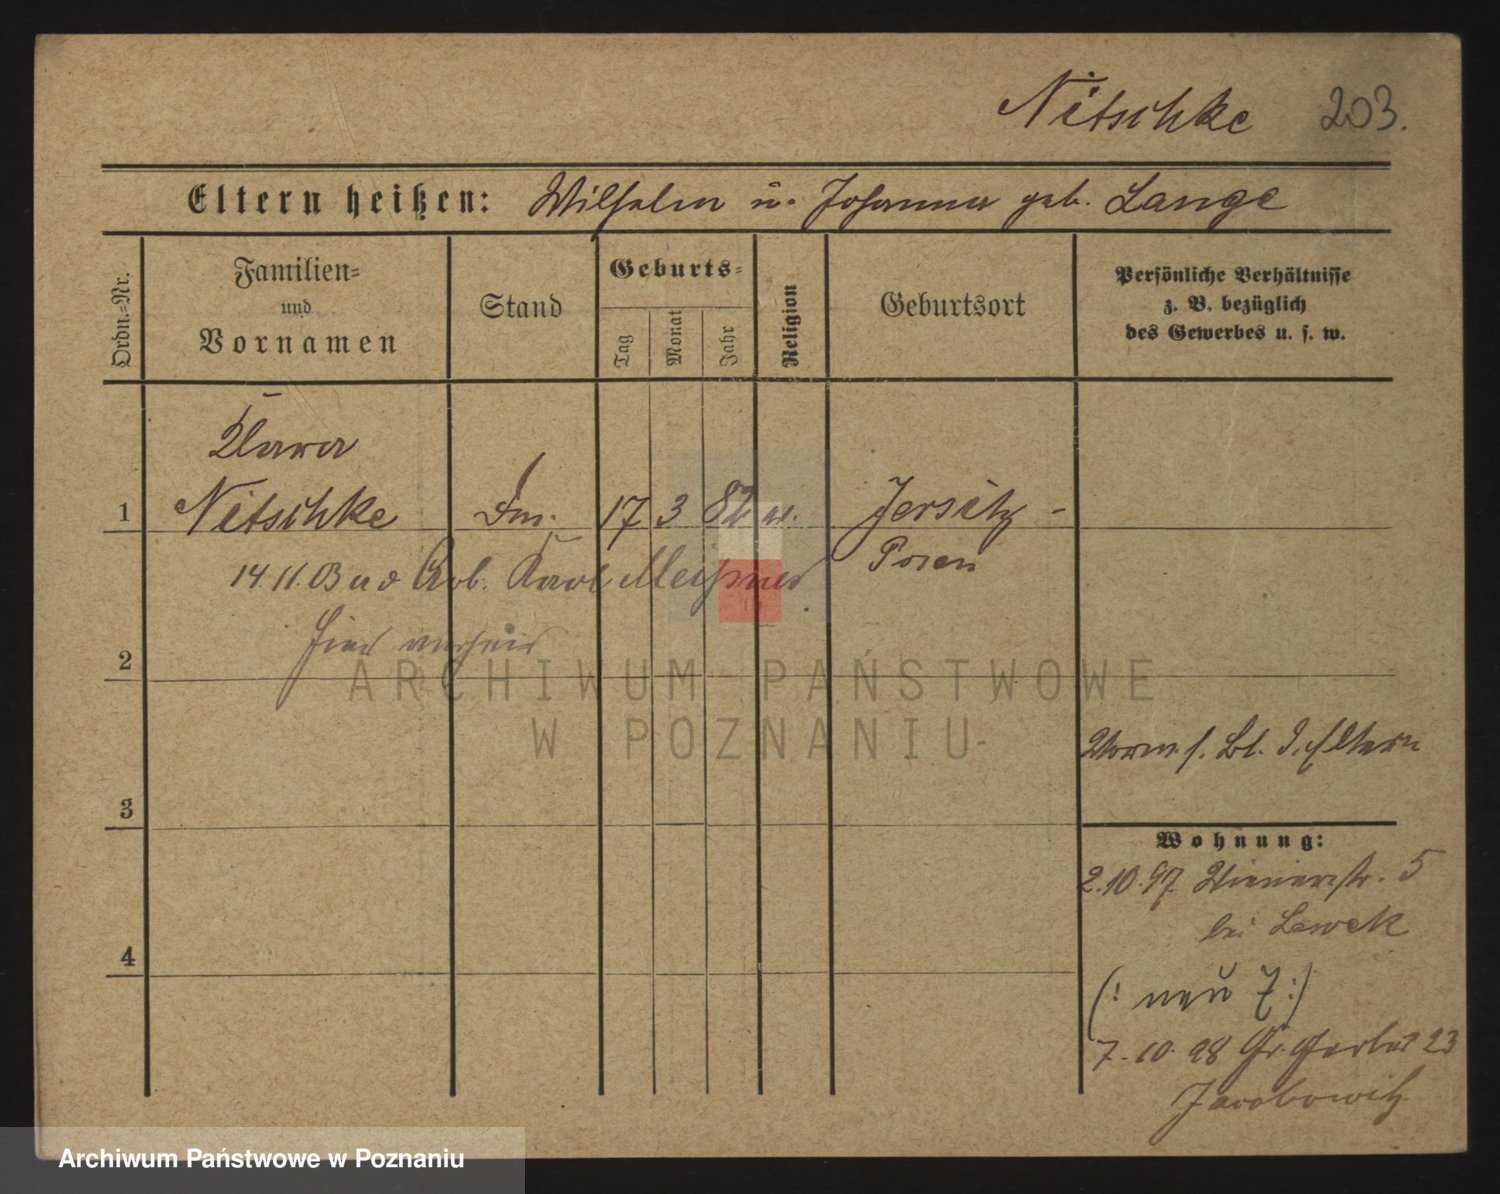 Nitschke 203.
Eltern heißen: Wilhelm u. Johanna geb. Lange
Ordn.-Nr.
Familien-
und
Vornamen
Stand
Geburts-
Tag
Monat
Jahr
Religion
Geburtsort
Persönliche Verhältnisse
z. B. bezüglich
des Gewerbes u. s. w.
Clara
1 Nitschke Dm. 17 3 82 Jersitz -
Posen
14.11.03 Arb. Karl Meißner
hier
2
ARCHIWUM PAŃSTWOWE
W POZNANIU
Bl. d. Eltern
3
Wohnung:
2.10.97 Wienerstr. 5
bei Lewek
4
(: neu 7:)
7.10.98 Gr. Gerbst 23
Jacobowitz
Archiwum Państwowe w Poznaniu